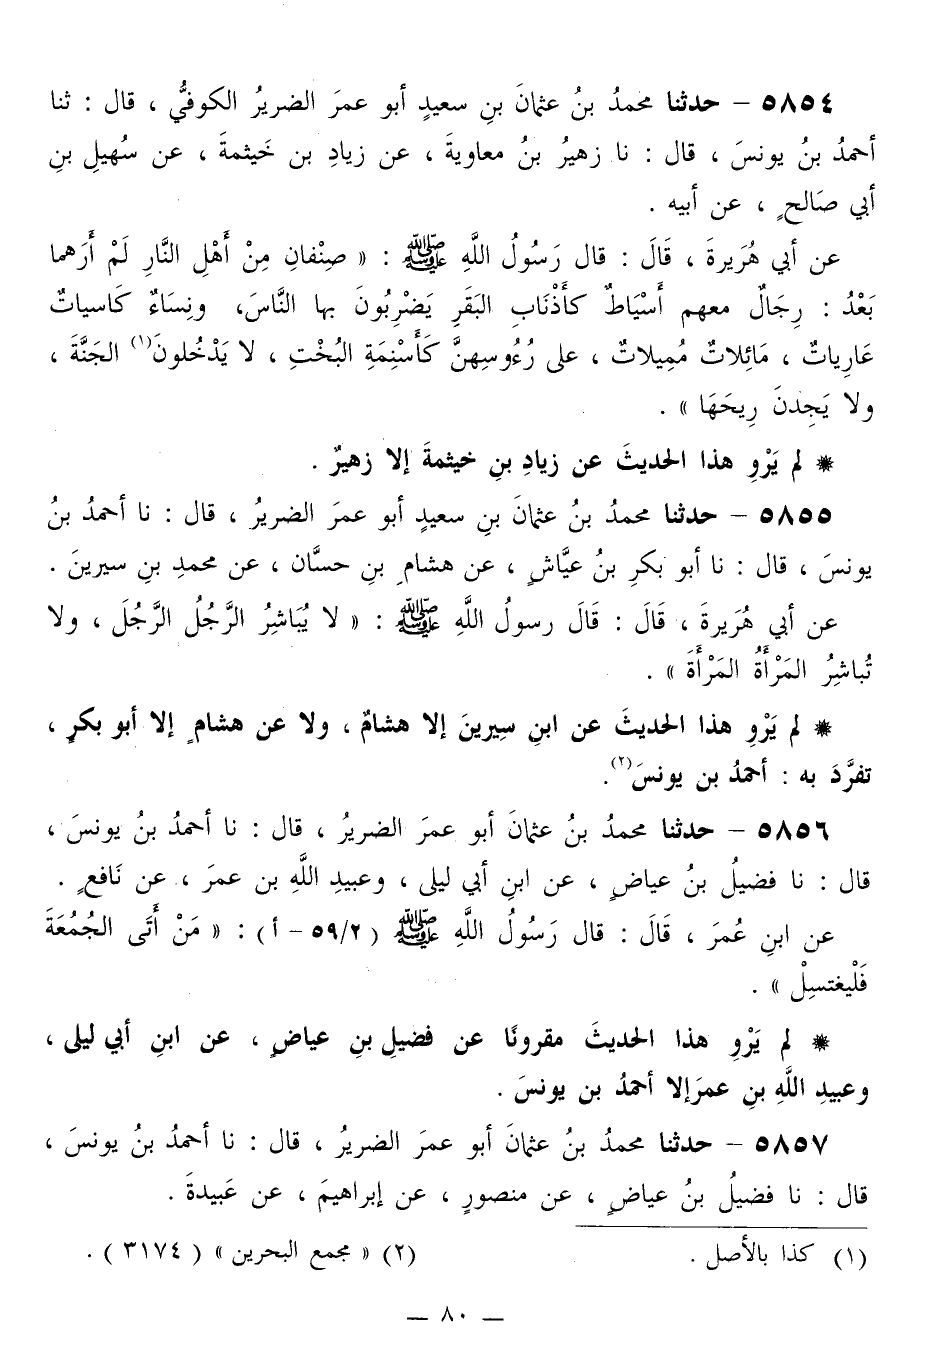 ٥٨٥٤ – حدثنا محمدُ بنُ عثمانَ بنِ سعيدٍ أبو عمرَ الضريرُ الكوفيُّ ، قال : ثنا
أحمدُ بنُ يونسَ ، قال : نا زهيرُ بنُ معاويةَ ، عن زيادِ بن خَيثمةَ ، عن سُهيلِ بنِ
أبي صَالحٍ ، عن أبيه .
عن أبي هُرَيرةَ ، قَالَ : قال رَسُولُ اللَّهِ ﷺ : « صِنْفانِ مِنْ أَهْلِ النَّارِ لَمْ أَرَهما
بَعْدُ : رِجَالٌ معهم أَسْيَاطٌ كأَذْنَابِ البَقَرِ يَضْرِبُونَ بها النَّاسَ، ونِسَاءٌ كَاسياتٌ
عَارِياتٌ ، مَائِلاتٌ مُمِيلاتٌ ، على رُءُوسِهنَّ كَأَسْنِمَةِ البُخْتِ ، لا يَدْخُلونَ(١) الجَنَّةَ ،
ولا يَجِدنَ رِيحَهَا » .
* لم يَرْوِ هذا الحديثَ عن زيادِ بنِ خيثمةَ إلا زهيرٌ .
٥٨٥٥ – حدثنا محمدُ بنُ عثمانَ بنِ سعيدٍ أبو عمرَ الضريرُ ، قال : نا أحمدُ بنُ
يونسَ ، قال : نا أبو بكرِ بنُ عيَّاشٍ ، عن هشامِ بنِ حسَّان ، عن محمدِ بنِ سيرينَ .
عن أبي هُرَيرةَ ، قَالَ : قَالَ رسولُ اللَّهِ ﷺ : « لا يُبَاشِرُ الرَّجُلُ الرَّجُلَ ، ولا
تُباشِرُ المَرْأَةُ المَرْأَةَ » .
* لم يَرْوِ هذا الحديثَ عن ابنِ سِيرينَ إلا هشامٌ ، ولا عن هشامٍ إلا أبو بكرٍ ،
تفرَّدَ به : أحمدُ بن يونسَ(٢).
٥٨٥٦ – حدثنا محمدُ بنُ عثمانَ أبو عمرَ الضريرُ ، قال : نا أحمدُ بنُ يونسَ ،
قال : نا فضيلُ بنُ عياضٍ ، عن ابنِ أبي ليلى ، وعبيدِ اللَّهِ بن عمرَ ، عن نَافعٍ .
عن ابنِ عُمرَ ، قَالَ : قال رَسُولُ اللَّهِ ﷺ ( ٥٩/٢ – أ ) : « مَنْ أَتَى الجُمُعَةَ
فَلْيغتسِلْ » .
* لم يَرْوِ هذا الحديثَ مقرونًا عن فضيلِ بنِ عياضٍ ، عن ابنِ أبي ليلى ،
وعبيدِ اللَّهِ بنِ عمرَ إلا أحمدُ بن يونسَ .
٥٨٥٧ – حدثنا محمدُ بنُ عثمانَ أبو عمرَ الضريرُ ، قال : نا أحمدُ بنُ يونسَ ،
قال : نا فضيلُ بنُ عياضٍ ، عن منصورٍ ، عن إبراهيمَ ، عن عَبيدةَ .
(١) كذا بالأصل . (٢) « مجمع البحرين » ( ٣١٧٤ ) .
— ٨٠ —